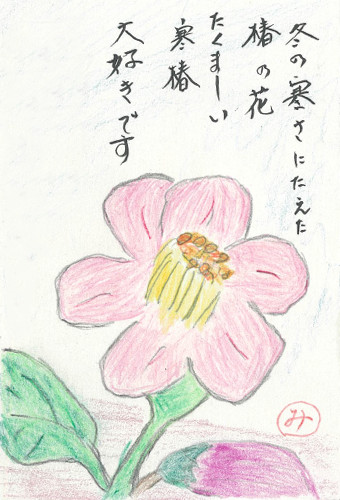 冬の寒さにたえた
椿の花
たくましい
寒椿
大好きです
み